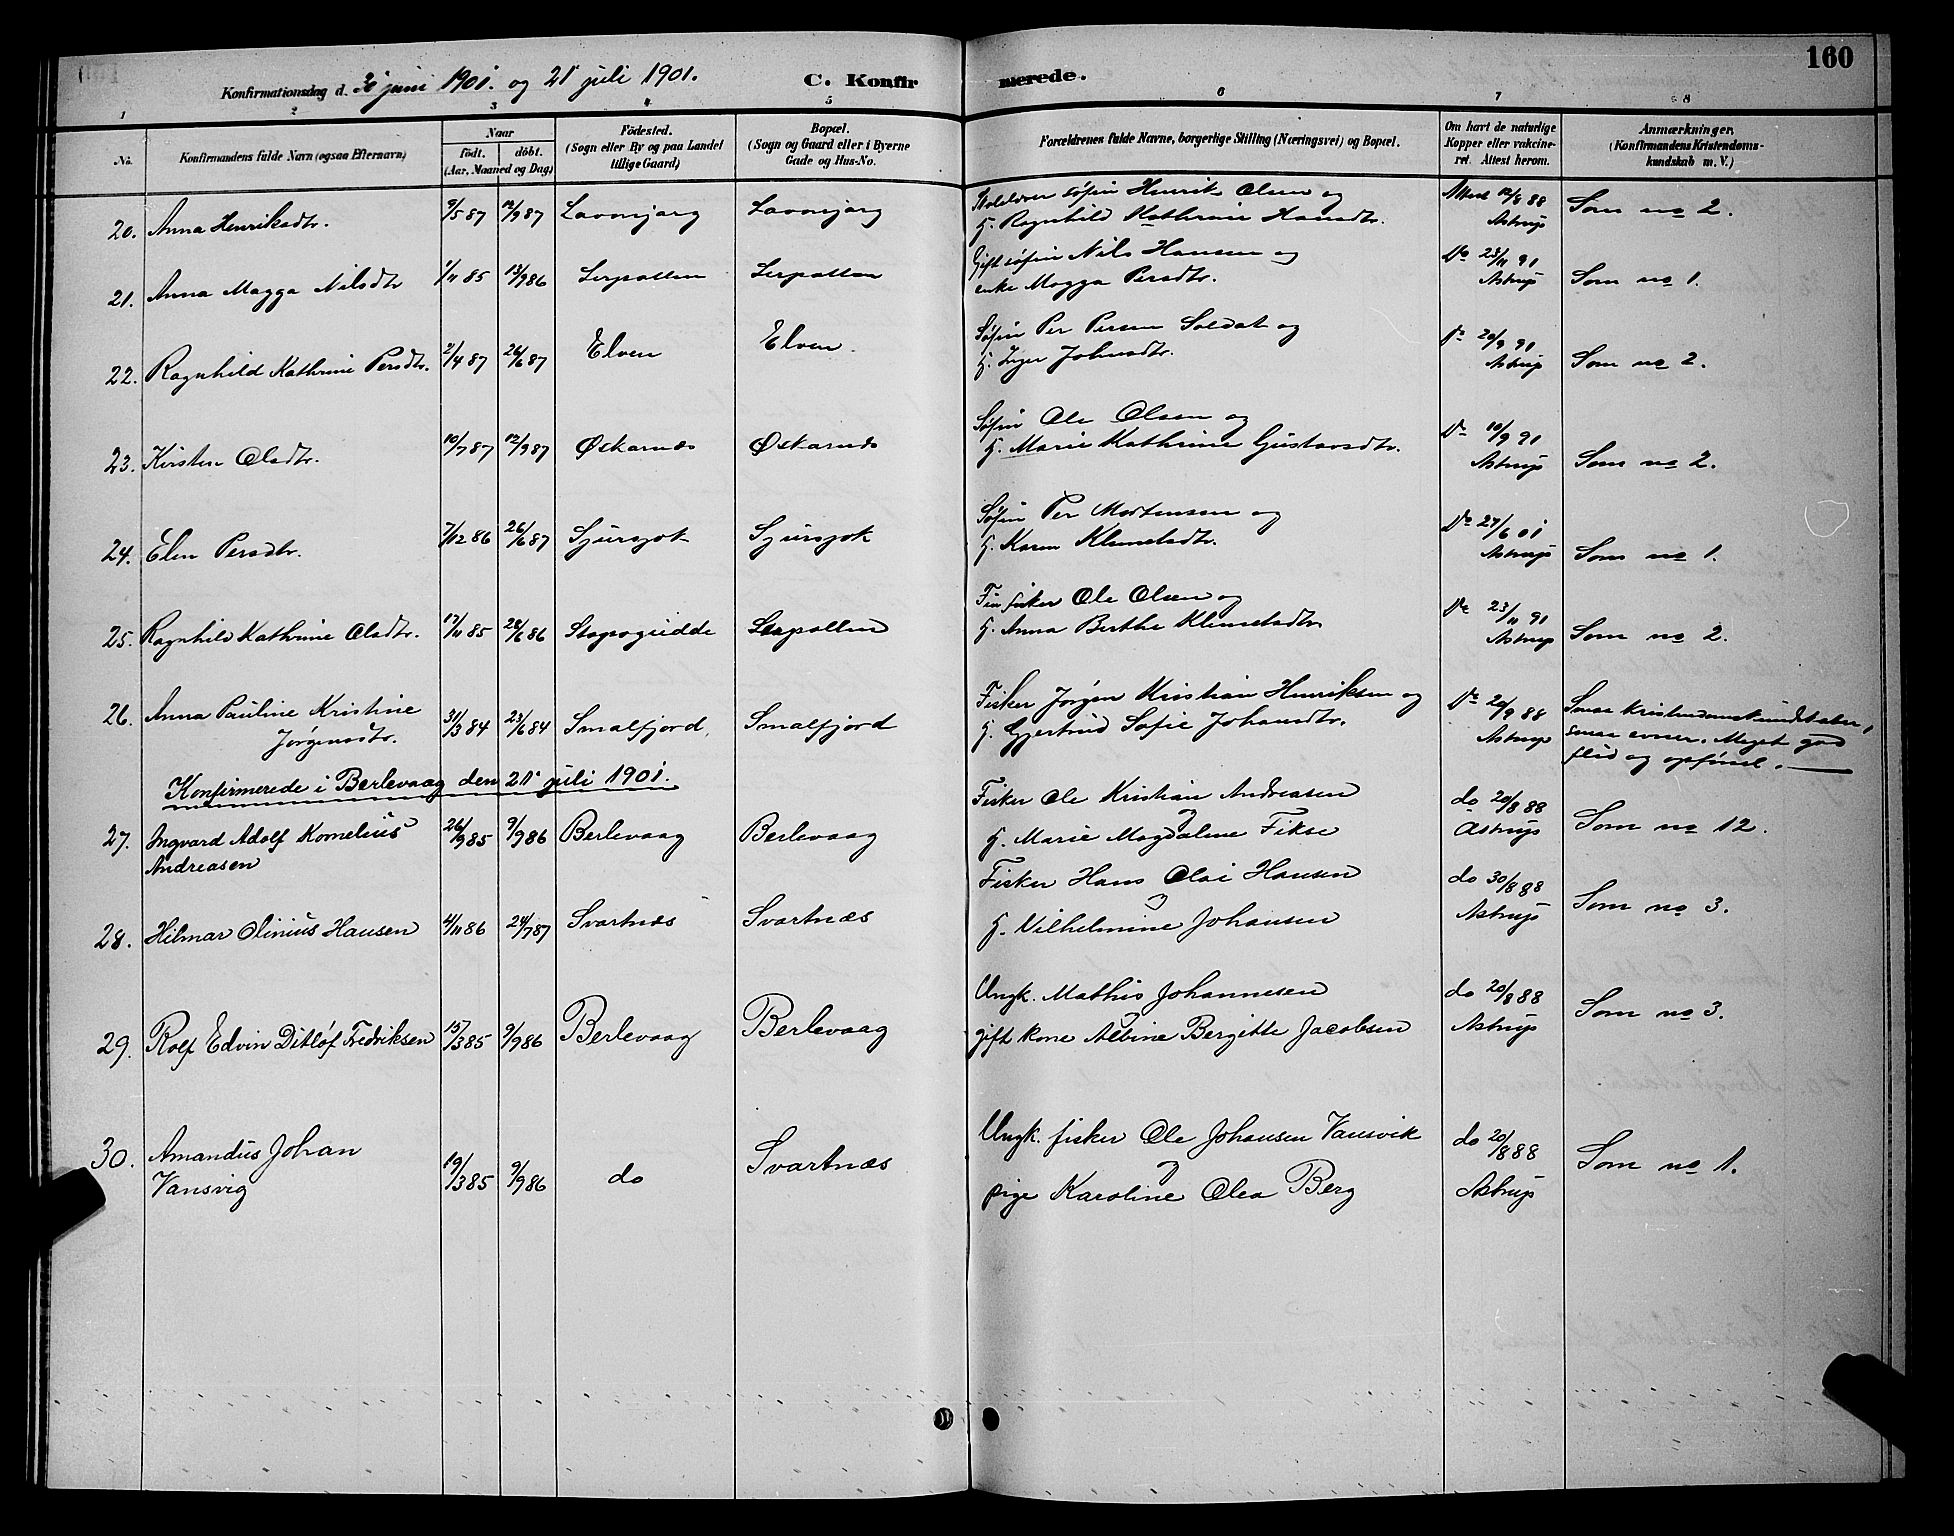 160
Konfirmationsdag d. 30 juni 1901. og 21 juli 1901. C. Konfirmerede.
1 2 3 4 5 6 7 8
No. Konfirmandens fulde Navn (ogsaa Efternavn) Naar födt. döbt. (Aar, Maaned og Dag) Födested. (Sogn eller By og paa Landet tillige Gaard) Bopæl. (Sogn og Gaard eller i Byerne Gade og Hus-No. Forældrenes fulde Navne, borgerlige Stilling (Næringsvei) og Bopæl. Om havt de naturlige Kopper eller vakcineret. Attest herom. Anmærkninger. (Konfirmandens Kristendomskundskab m. V.)
20. Anna Henriksdtr. 9/5 87 12/9 87 Lavonjarg Lavonjarg søfin Henrik Olsen og
H. Ragnhild Kathrine Hansdtr. Attest 12/8 88 Astrup Som no 2.
21. Anna Magga Nilsdtr 1/11 85 13/9 86 Lerpollen Lerpollen Gift søfin Nils Hansen og
enke Magga Persdtr. Do 23/11 91 Astrup Som no 1.
22. Ragnhild Kathrine Persdtr. 2/4 87 26/6 87 Elven Elven. Søfin Per Persen Soldat og
H. Inger Johnsdtr. Do 20/9 91 Astrup Som no 2.
23. Kirsten Olsdtr. 10/7 87 12/9 87 Øskarnæs Øskarnæs Søfin Ole Olsen og
H. Marie Kathrine Gustavsdtr. Do 10/9 91 Astrup Som no 2.
24. Elen Persdtr. 7/12 86 26/6 87 Sjursjok Sjursjok Søfin Per Mortensen og
H. Karen Klemetsdtr. Do 27/6 01 Astrup Som no 1.
25. Ragnhild Kathrine Olsdtr. 17/11 85 28/6 86 Stapogiedde Lerpollen Fin fisker Ole Olsen og
H. Anna Berthe Klemetsdtr Do 23/11 91 Astrup Som no 2.
26. Anna Pauline Kristine
Jørgensdtr. 31/3 84 23/6 84 Smalfjord, Smalfjord Fisker Jørgen Kristian Henriksen og
H. Gjertrud Sofie Johansdtr. Do 20/9 88 Astrup Smaa Kristendomskundskaber,
smaa evner. Meget god
flid og opførsel.
Konfirmerede i Berlevaag den 21 juli 1901.
27. Ingvard Adolf Kornelius
Andreasen 26/9 85 9/9 86 Berlevaag Berlevaag Fisker Ole Kristian Andreasen
og
H. Marie Magdalene Fikse do 20/8 88 Astrup Som no 12.
28. Hilmar Olinius Hansen 4/11 86 24/7 87 Svartnæs Svartnæs Fisker Hans Olai Hansen
og
H. Vilhelmine Johansen do 30/8 88 Astrup Som no 3.
29. Rolf Edvin Ditløf Fredriksen 15/3 85 9/9 86 Berlevaag Berlevaag Ungk. Mathis Johannesen
og
gift kone Albine Bergitte Jacobsen do 20/8 88 Astrup Som no 3.
30. Amandus Johan
Vansvig 19/3 85 9/9 86 do Svartnæs Ungk. fisker Ole Johansen Vansvik
og
pige Karoline Olea Berg do 20/8 88 Astrup Som no 1.